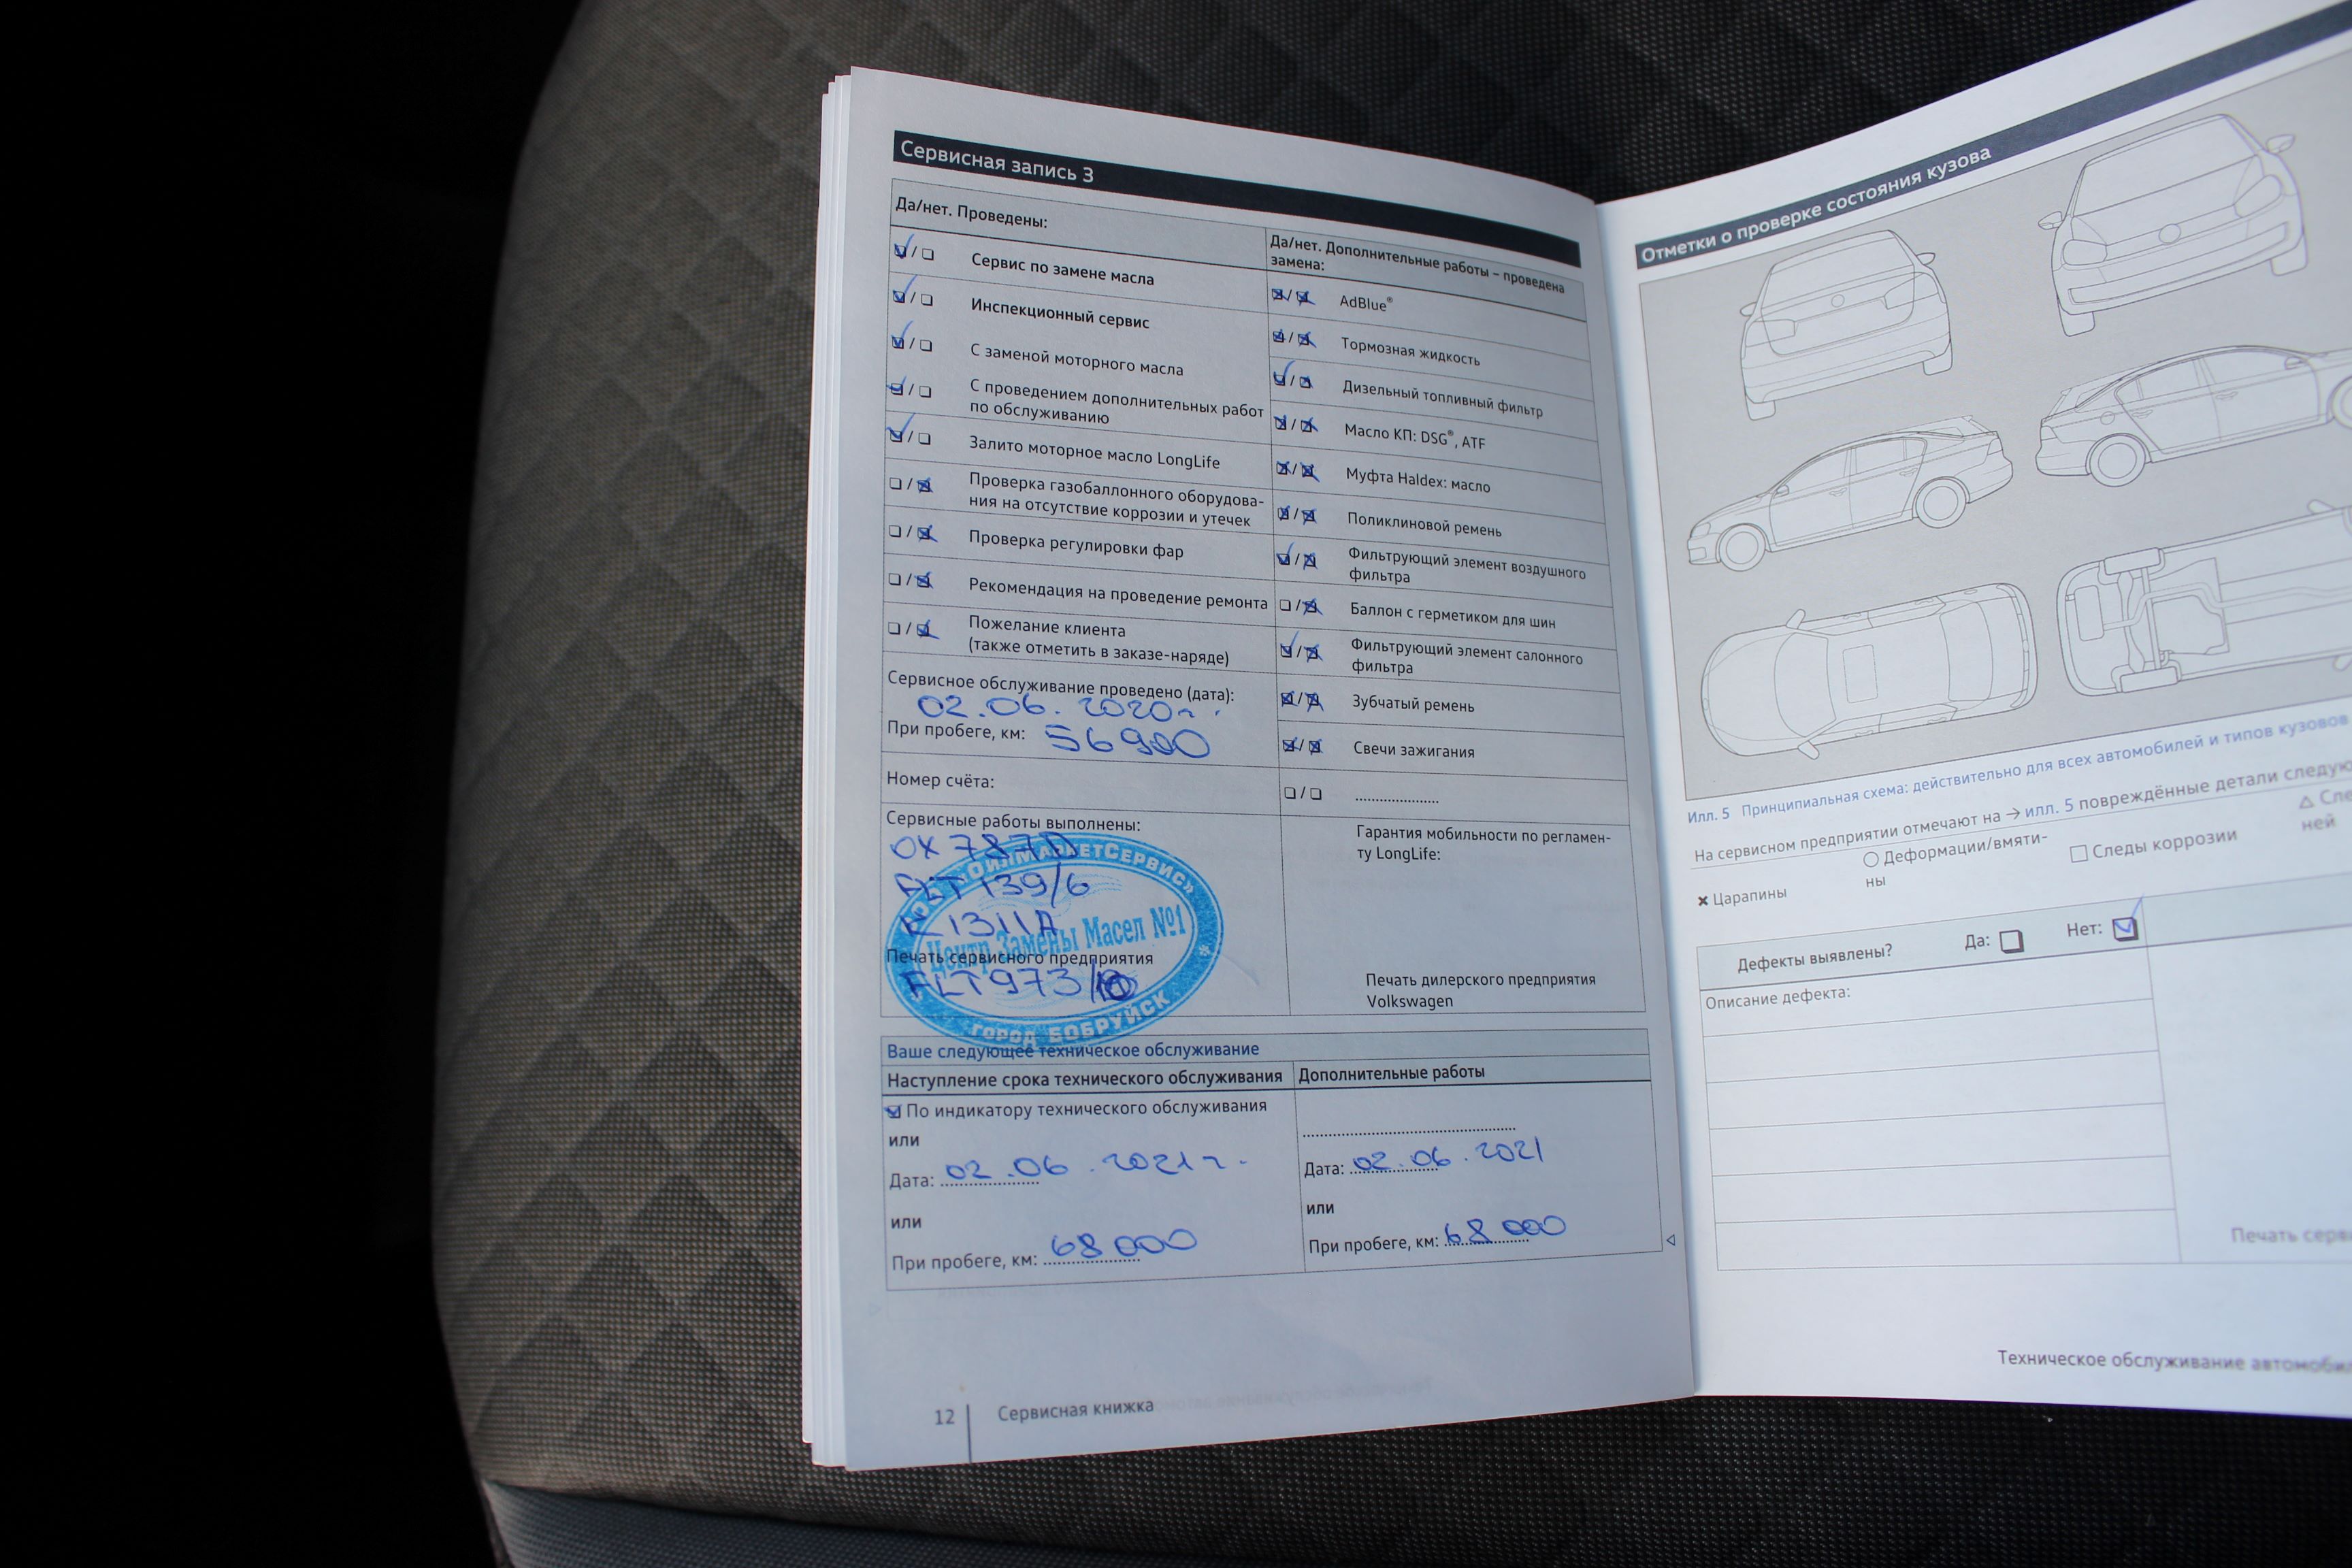 Сервисная запись 3
Да/нет. Проведены:
Сервис по замене масла
Инспекционный сервис
С заменой моторного масла
С проведением дополнительных работ
по обслуживанию
Залито моторное масло LongLife
Проверка газобаллонного оборудова-
ния на отсутствие коррозии и утечек
Проверка регулировки фар
Рекомендация на проведение ремонта
Пожелание клиента
(также отметить в заказе-наряде)
Сервисное обслуживание проведено (дата):
02.06.2020г.
При пробеге, км: 56900
Номер счёта:
Сервисные работы выполнены:
OX 787D
K1311A
Центр Замены Масел №1
Печать сервисного предприятия
ГОРОД БОБРУЙСК
Да/нет. Дополнительные работы – проведена
замена:
AdBlue®
Тормозная жидкость
Дизельный топливный фильтр
Масло КП: DSG®, ATF
Муфта Haldex: масло
Поликлиновой ремень
Фильтрующий элемент воздушного
фильтра
Баллон с герметиком для шин
Фильтрующий элемент салонного
фильтра
Зубчатый ремень
Свечи зажигания
Гарантия мобильности по регламен-
ту LongLife:
Печать дилерского предприятия
Volkswagen
Ваше следующее техническое обслуживание
Наступление срока технического обслуживания
По индикатору технического обслуживания
или
Дата: 02.06.2021г.
или
При пробеге, км: 68000
Дополнительные работы
Дата: 02.06.2021
или
При пробеге, км: 68000
12
Сервисная книжка
Отметки о проверке состояния кузова
Илл. 5 Принципиальная схема: действительно для всех автомобилей и типов кузовов
На сервисном предприятии отмечают на → илл. 5 повреждённые детали
Царапины
Деформации/вмяти-
ны
Следы коррозии
ней
Дефекты выявлены?
Да:
Нет:
Описание дефекта:
Печать
Техническое обслуживание